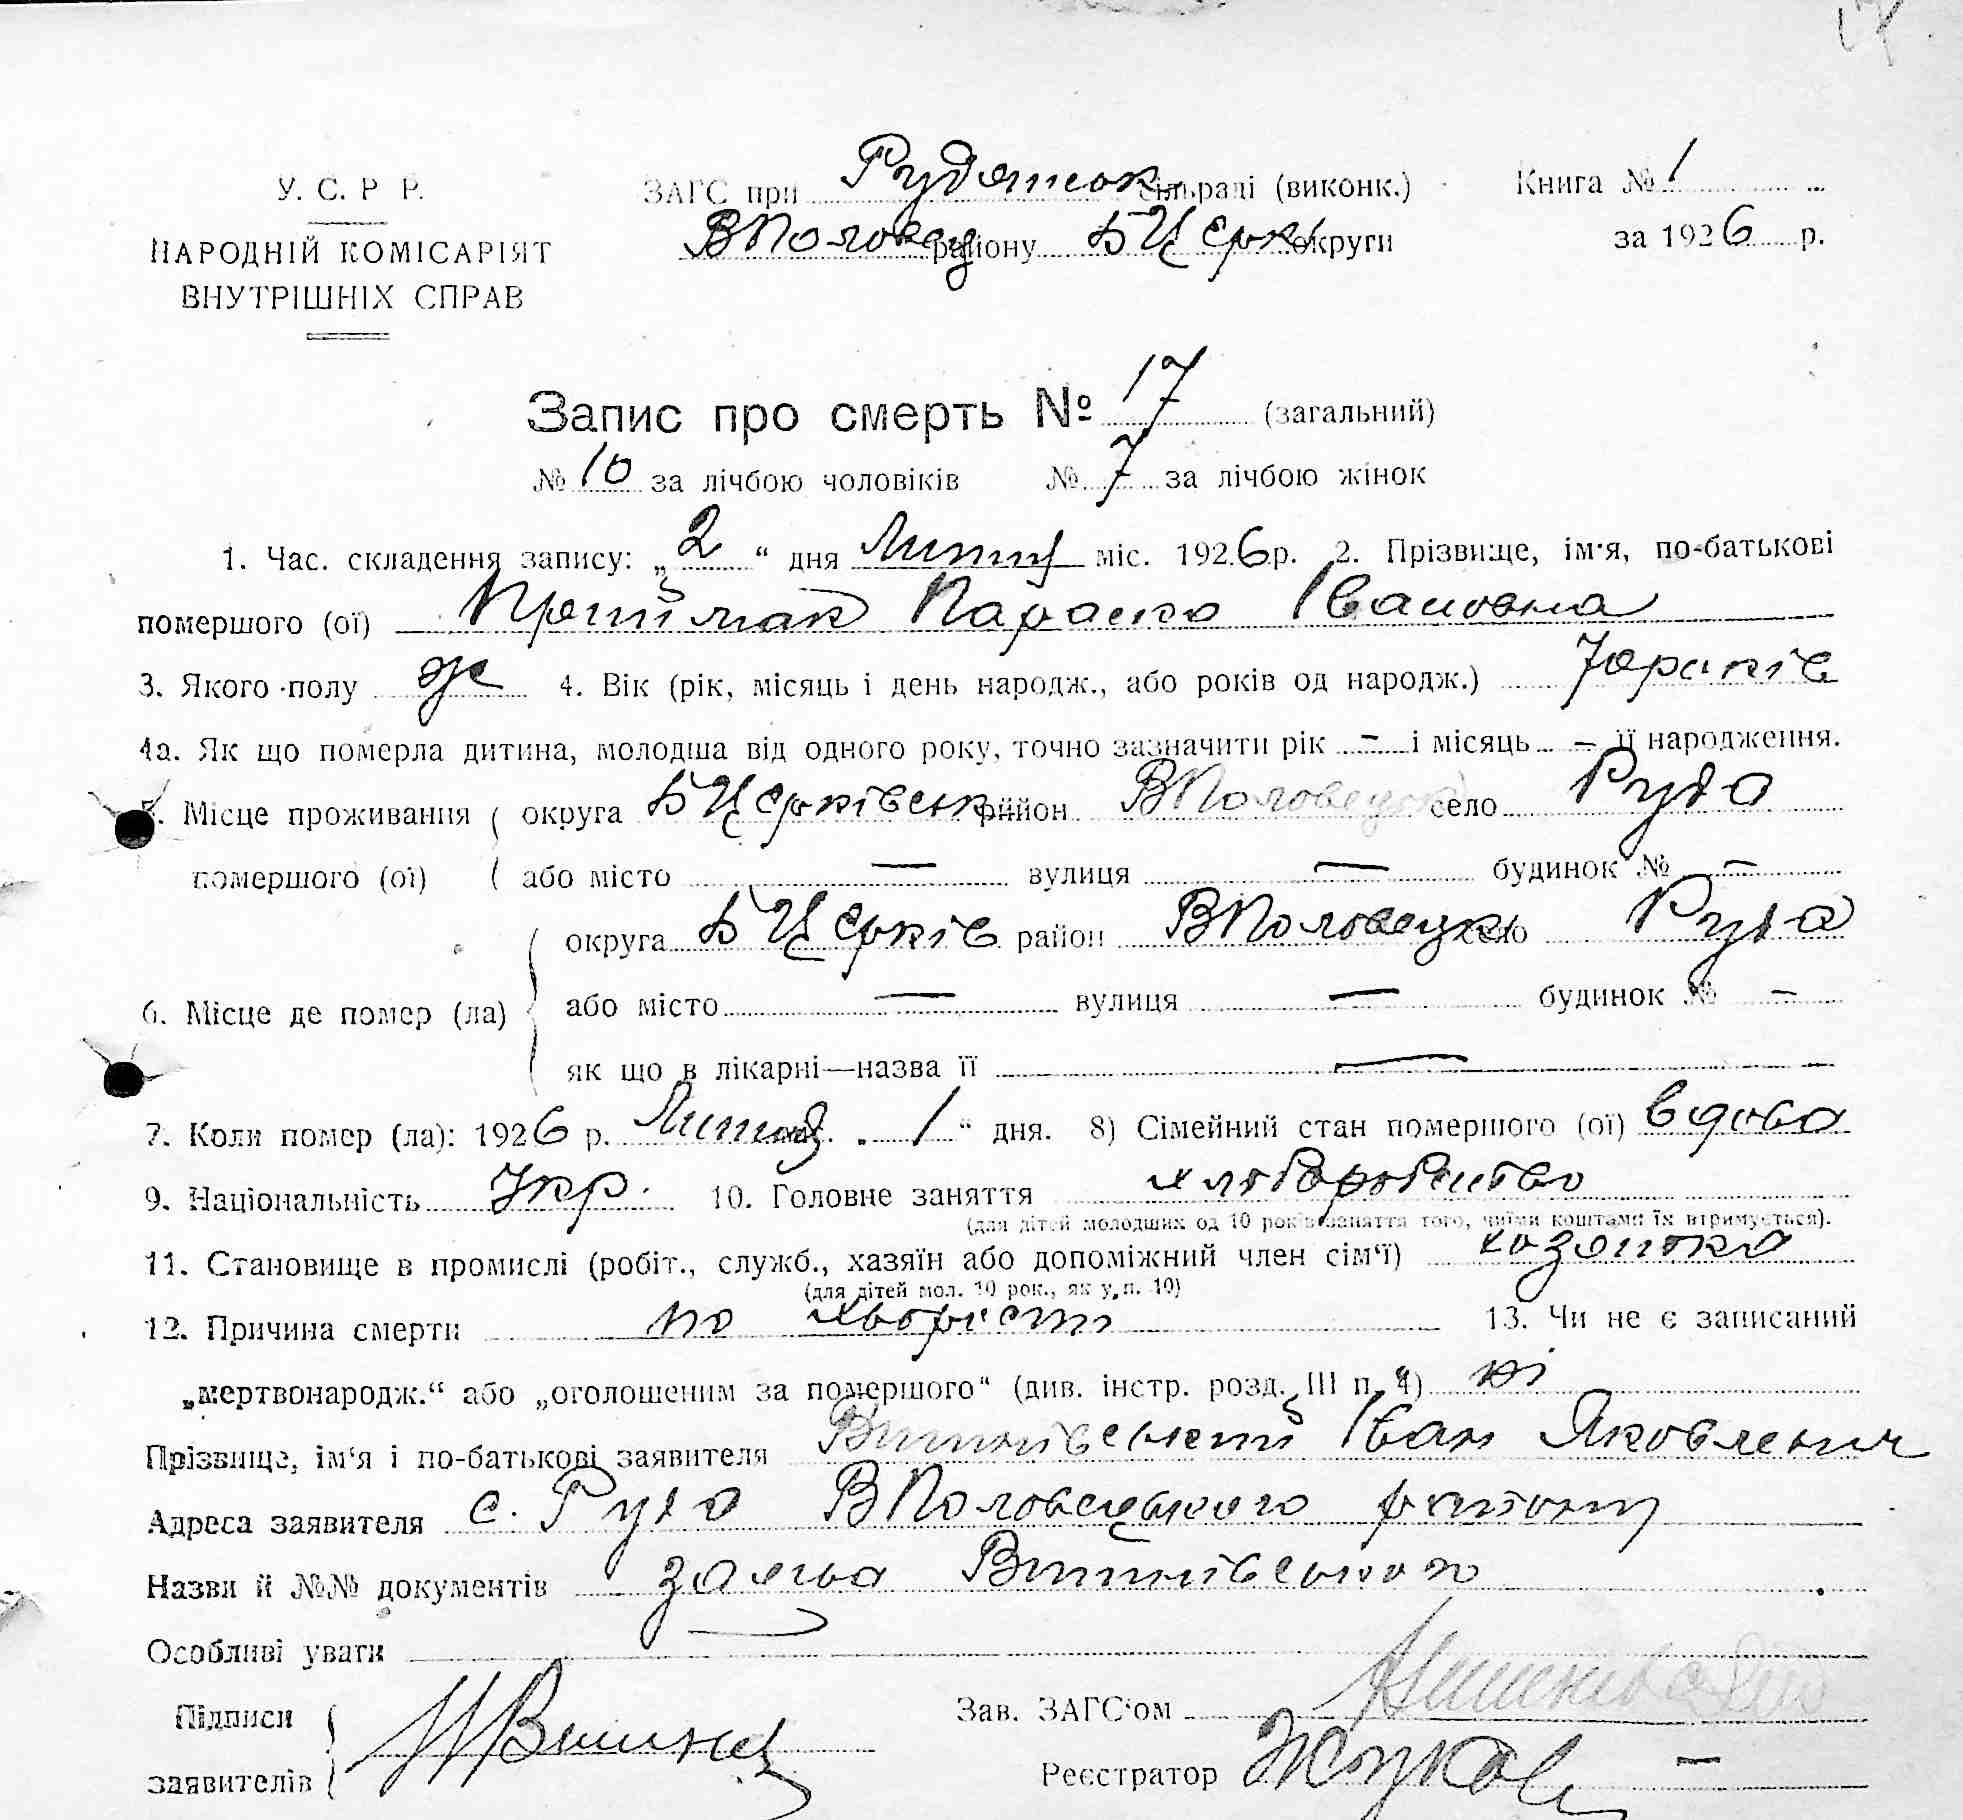 17
У. С. Р Р.
НАРОДНІЙ КОМІСАРІЯТ
ВНУТРІШНІХ СПРАВ
ЗАГС при Рудянськ сільраді (виконк.)
ВПоловец району БЦерк округи
Книга № 1
за 1926 р.
Запис про смерть № 17 (загальний)
№ 10 за лічбою чоловіків № 7 за лічбою жінок
1. Час. складення запису: „2“ дня Липця міс. 1926 р. 2. Прізвище, ім'я, по-батькові
помершого (ої) Приймак Параска Івановна
3. Якого полу ж 4. Вік (рік, місяць і день народж., або років од народж.) 70 років
4а. Як що померла дитина, молодша від одного року, точно зазначити рік – і місяць – її народження.
5. Місце проживання округа БЦерківськ район ВПоловецьк село Руда
помершого (ої) або місто — вулиця — будинок № —
округа БЦерків район ВПоловецьк село Руда
6. Місце де помер (ла) або місто — вулиця — будинок № –
як що в лікарні—назва її —
7. Коли помер (ла): 1926 р. Липця „1“ дня. 8) Сімейний стан помершого (ої) вдова
9. Національність Укр. 10. Головне заняття хліборобство
(для дітей молодших од 10 років заняття того, чиїми коштами їх втримується).
11. Становище в промислі (робіт., служб., хазяїн або допоміжний член сім'ї) хозяйка
(для дітей мол. 10 рок., як у п. 10)
12. Причина смерти по хворости 13. Чи не є записаний
„мертвонародж.“ або „оголошеним за помершого“ (див. інстр. розд. III п. 4) ні
Прізвище, ім'я і по-батькові заявителя Вишнівський Іван Яковлевич
Адреса заявителя с. Руда ВПоловецького району
Назви й №№ документів заява Вишнівського
Особливі уваги
Підписи
заявителів
Зав. ЗАГС'ом
Реєстратор Жуков —